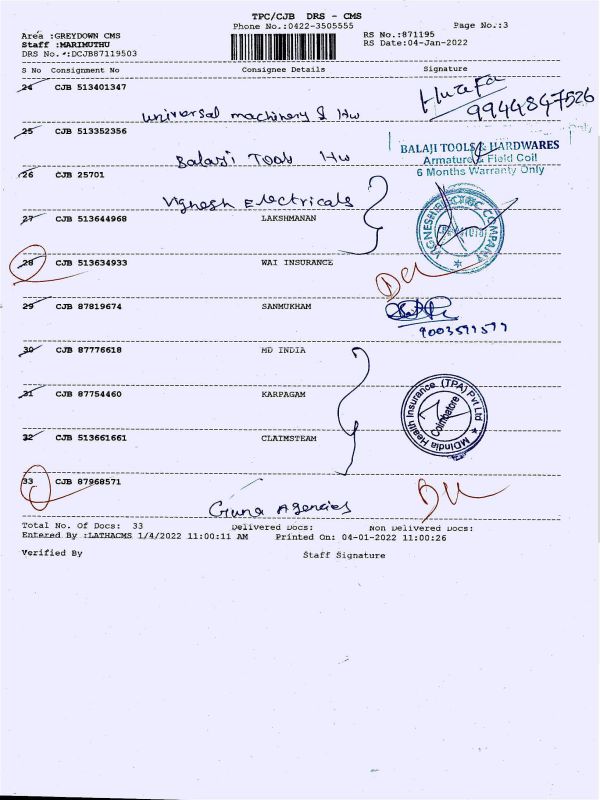 TPC/CJB DRS - CMS
Phone No.:0422-3505555 Page No.:3
Area :GREYDOWN CMS RS No.:871195
Staff :MARIMUTHU RS Date:04-Jan-2022
DRS No.*:DCJB87119503
S No Consignment No Consignee Details Signature
24 CJB 513401347 Huzefa
universal machinery & Hw 9944847526
25 CJB 513352356
Balaji Tools Hw BALAJI TOOLS & HARDWARES
Armature & Field Coil
26 CJB 25701 6 Months Warranty Only
Vgnesh Electricals
27 CJB 513644968 LAKSHMANAN
VIGNESH ELECTRIC COMPANY
28 CJB 513634933 WAI INSURANCE
29 CJB 87819674 SANMUKHAM
30 CJB 87776618 MD INDIA
31 CJB 87754460 KARPAGAM
MDIndia Health Insurance (TPA) Pvt Ltd
Coimbatore
32 CJB 513661661 CLAIMSTEAM
33 CJB 87968571
Guna Agencies
Total No. Of Docs: 33 Delivered Docs: Non Delivered Docs:
Entered By :LATHACMS 1/4/2022 11:00:11 AM Printed On: 04-01-2022 11:00:26
Verified By Staff Signature